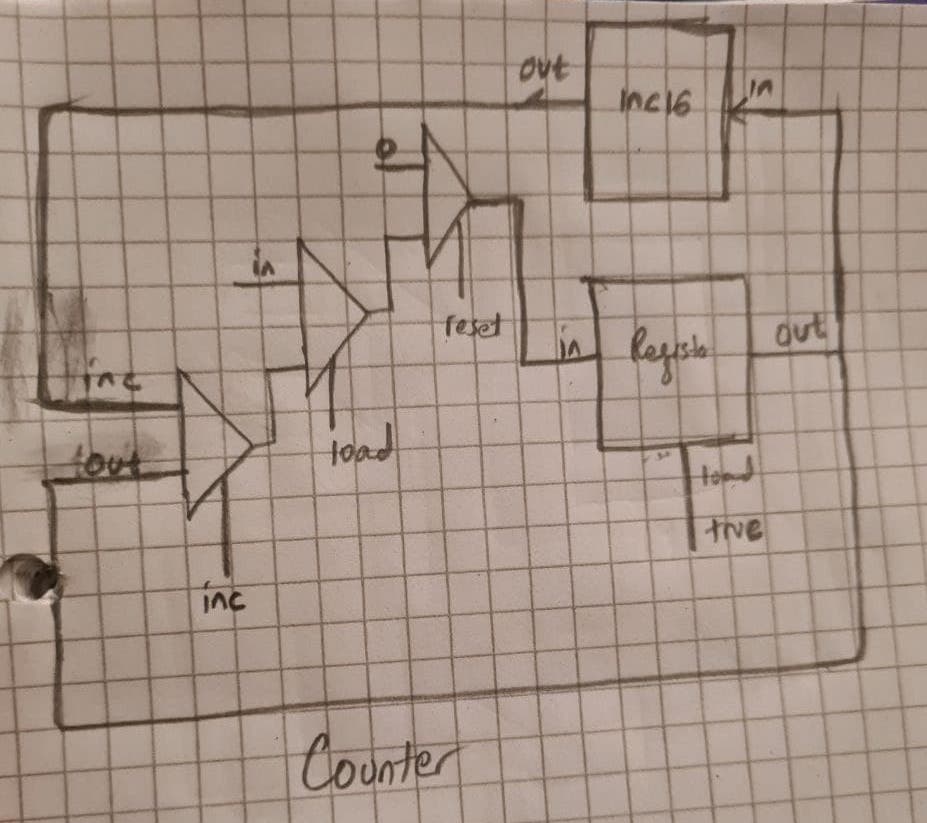 out
Inc16
in
0
in
reset
in
Register
out
inc
load
out
load
true
inc
Counter